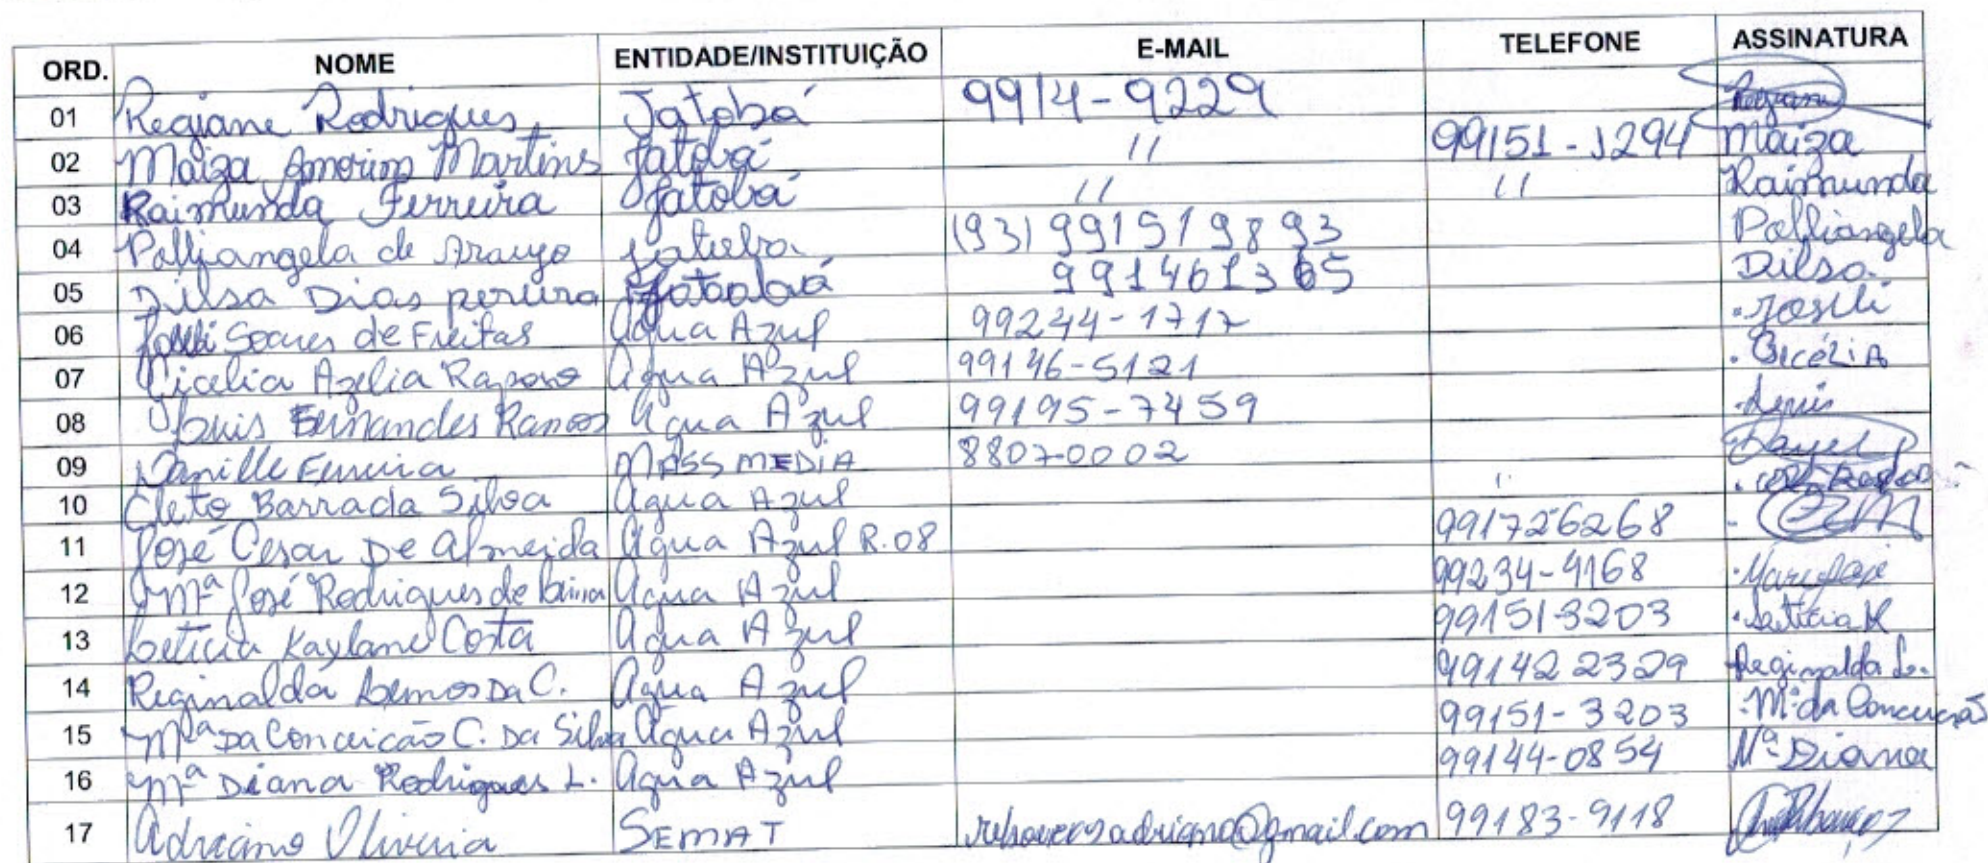 ORD. NOME ENTIDADE/INSTITUIÇÃO E-MAIL TELEFONE ASSINATURA
01 Regiane Rodrigues Jatobá 9914-9229 Regiane
02 Maiza Amorim Martins Jatobá 11 99151-1294 Maiza
03 Raimunda Ferreira Jatobá 11 11 Raimunda
04 Polliangela de Araujo Jatoba (93) 991519893 Polliangela
05 Dilsa Dias pereira Jatoobá 991461365 Dilsa
06 Soares de Freitas Agua Azul 99244-1717 Joseli
07 Azelia Raposo Agua Azul 99146-5121
08 Luis Fernandes Ramos Agua Azul 99195-7459 Luis
09 Danille Ferreira MASS MEDIA 8807-0002
10 Cleto Barrada Silva Agua Azul
11 José Cesar De Almeida Agua Azul R.08 991726268
12 Mª José Rodrigues de Agua Azul 99234-4168
13 Leticia Kaylane Costa Agua Azul 991513203 Leticia K
14 Reginalda Lemos Da C. Agua Azul 991422329 Reginalda L.
15 Mª Da Conceição C. Da Silva Agua Azul 99151-3203 Mª da Conceição
16 Mª Diana Rodrigues L. Agua Azul 99144-0854 Mª Diana
17 Adriano Oliveira SEMAT 99183-9118